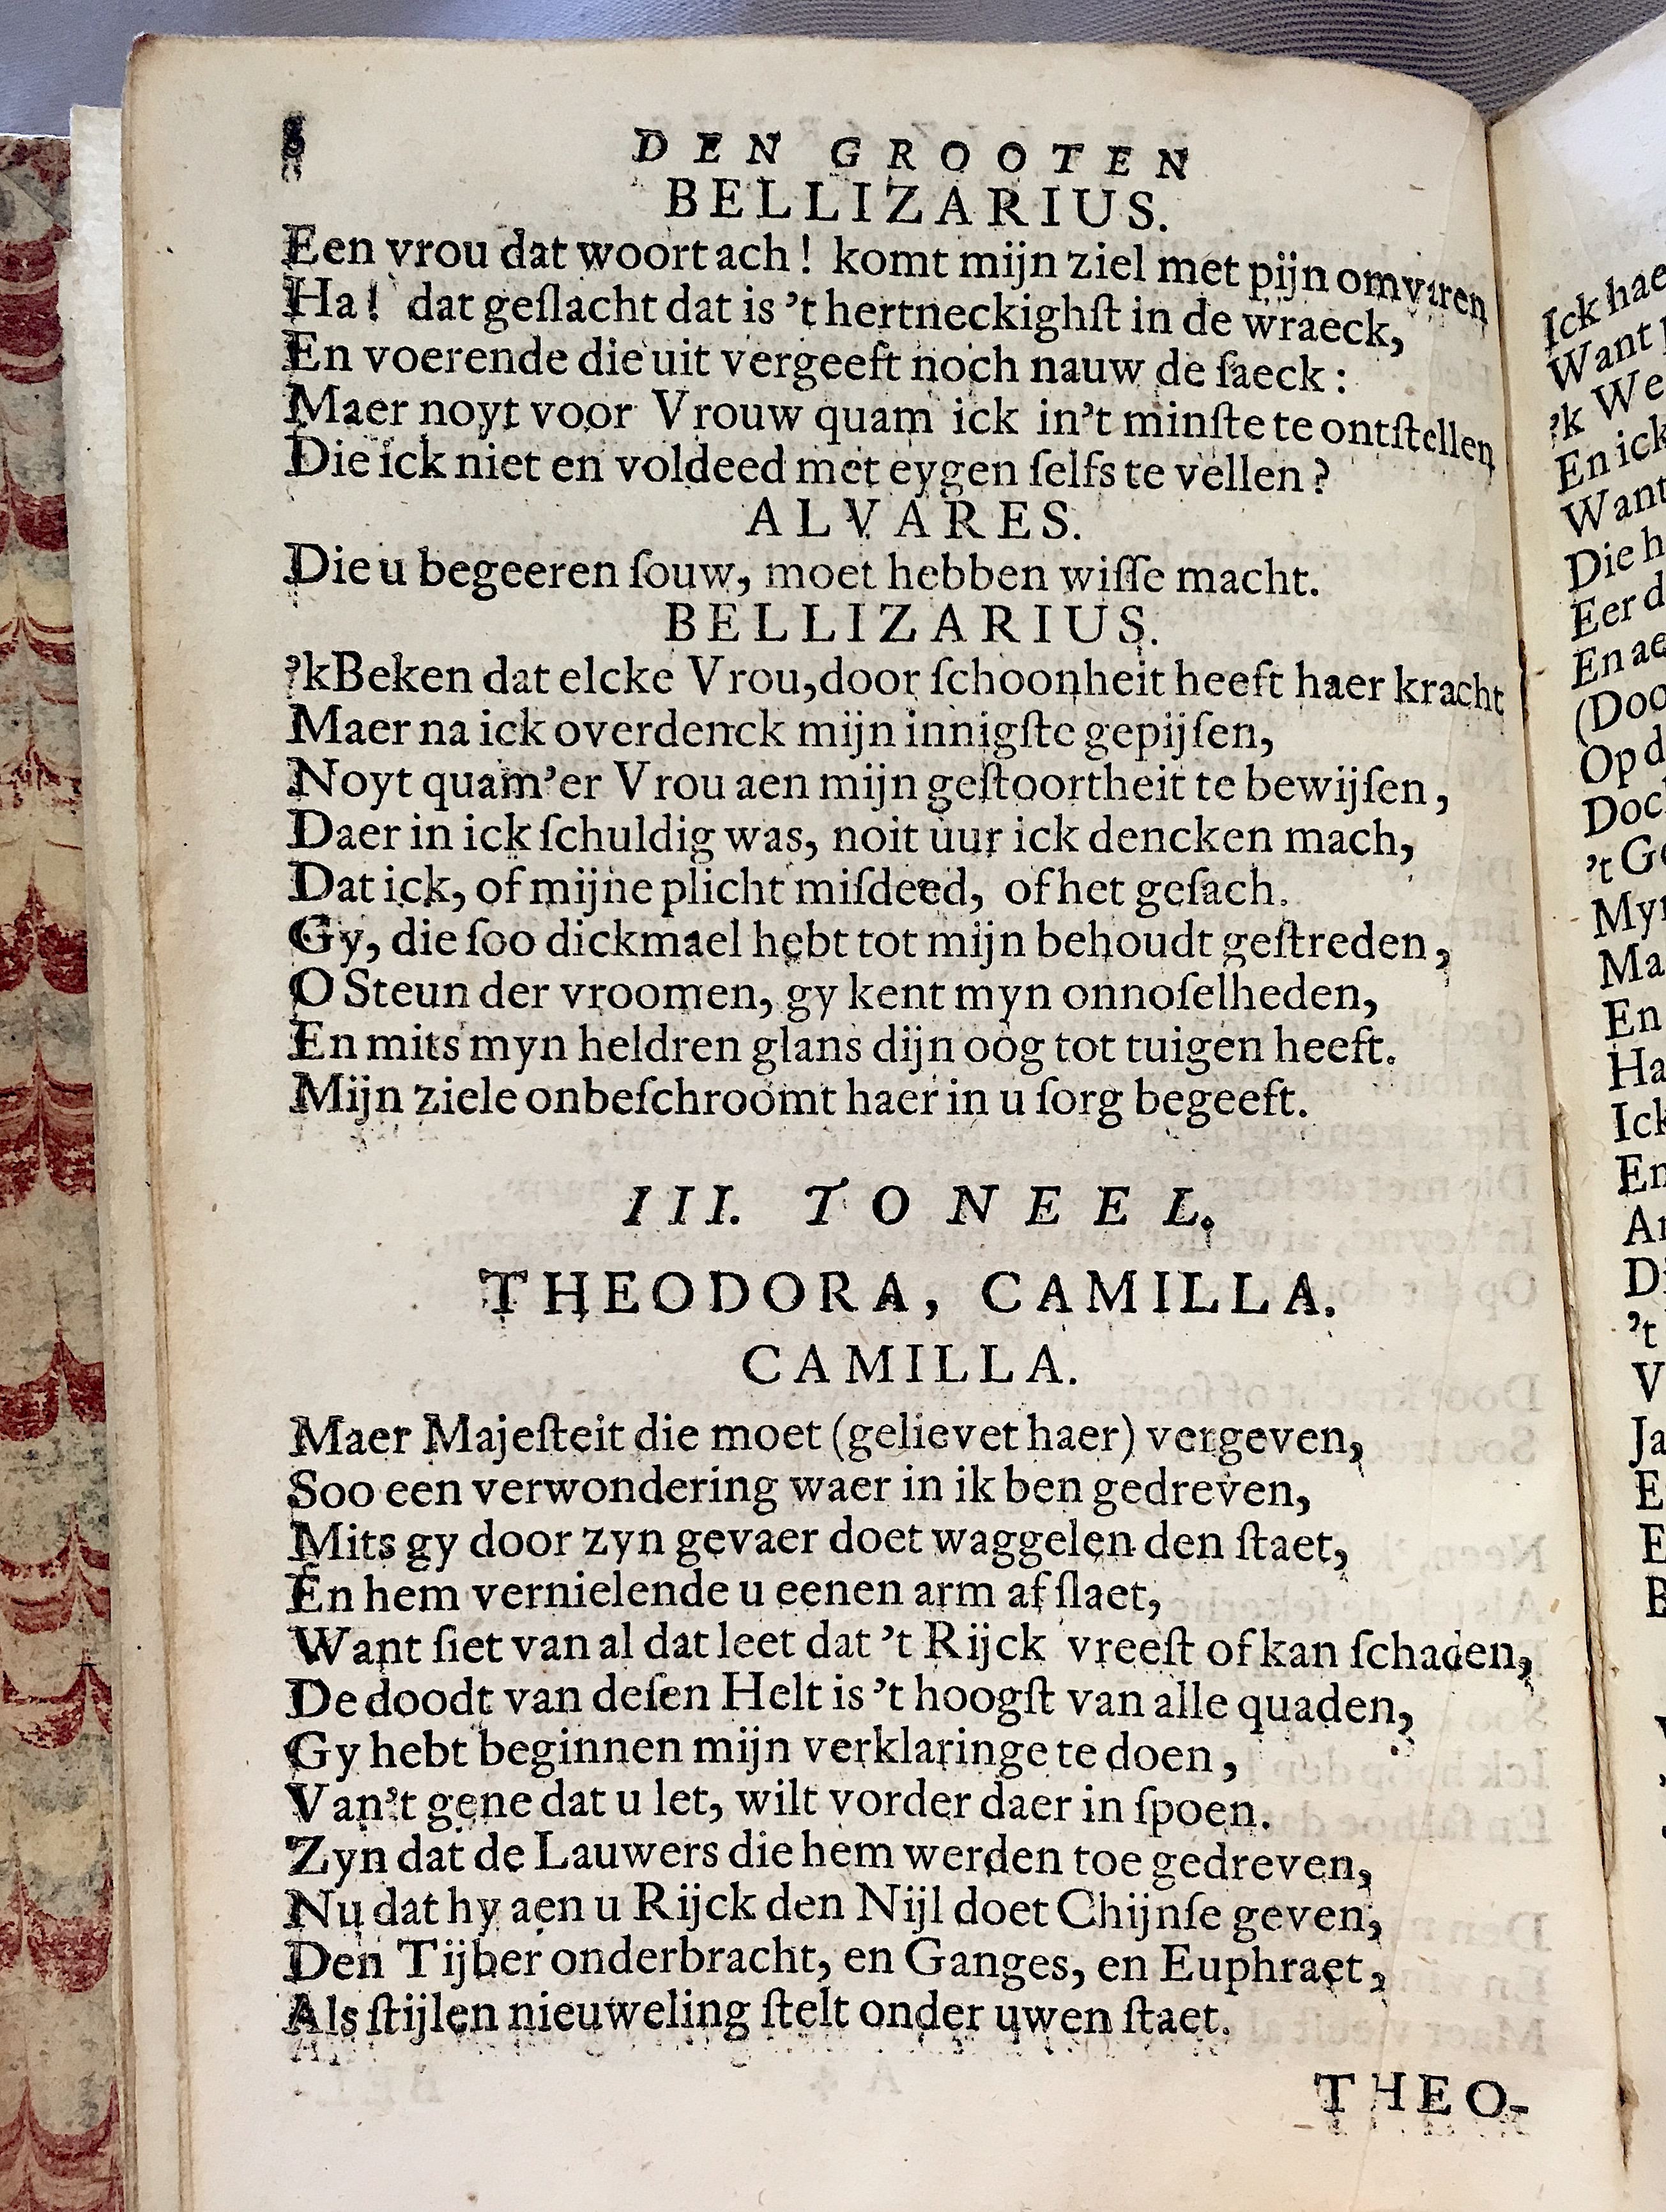 8
DEN GROOTEN
BELLIZARIUS.
Een vrou dat woort ach! komt mijn ziel met pijn omviren
Ha! dat geſlacht dat is 't hertneckighſt in de wraeck,
En voerende die uit vergeeft noch nauw de ſaeck:
Maer noyt voor Vrouw quam ick in't minſte te ontſtellen
Die ick niet en voldeed met eygen ſelfs te vellen?
ALVARES.
Die u begeeren ſouw, moet hebben wiſſe macht.
BELLIZARIUS.
'k Beken dat elcke Vrou, door ſchoonheit heeft haer kracht
Maer na ick overdenck mijn innigſte gepijſen,
Noyt quam'er Vrou aen mijn geſtoortheit te bewijſen,
Daer in ick ſchuldig was, noit uur ick dencken mach,
Dat ick, of mijne plicht miſdeed, of het geſach.
Gy, die ſoo dickmael hebt tot mijn behoudt geſtreden,
O Steun der vroomen, gy kent myn onnoſelheden,
En mits myn heldren glans dijn oog tot tuigen heeft.
Mijn ziele onbeſchroomt haer in u ſorg begeeft.
III. TONEEL.
THEODORA, CAMILLA.
CAMILLA.
Maer Majeſteit die moet (gelievet haer) vergeven,
Soo een verwondering waer in ik ben gedreven,
Mits gy door zyn gevaer doet waggelen den ſtaet,
En hem vernielende u eenen arm af ſlaet,
Want ſiet van al dat leet dat 't Rijck vreeſt of kan ſchaden,
De doodt van deſen Helt is 't hoogſt van alle quaden,
Gy hebt beginnen mijn verklaringe te doen,
Van't gene dat u let, wilt vorder daer in ſpoen.
Zyn dat de Lauwers die hem werden toe gedreven,
Nu dat hy aen u Rijck den Nijl doet Chijnſe geven,
Den Tijber onderbracht, en Ganges, en Euphraet,
Als ſtijlen nieuweling ſtelt onder uwen ſtaet.
THEO-
Ick hae
Want
'k We
En ick
Want
Die h
Eer d
En ae
(Doo
Op d
Doc
't Ge
Myn
Ma
En
Ha
Ick
En
Di
't
V
Ja
E
E